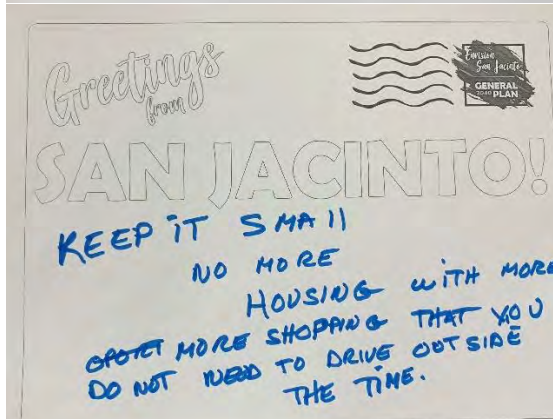 Greetings
from
Envision
San Jacinto
GENERAL
2040 PLAN
SAN JACINTO!
KEEP iT SMAll
NO MORE
HOUSING WiTH MORE
MORE SHOPPING THAT YOU
DO NOT NEED TO DRIVE OUTSIDE
THE TIME.